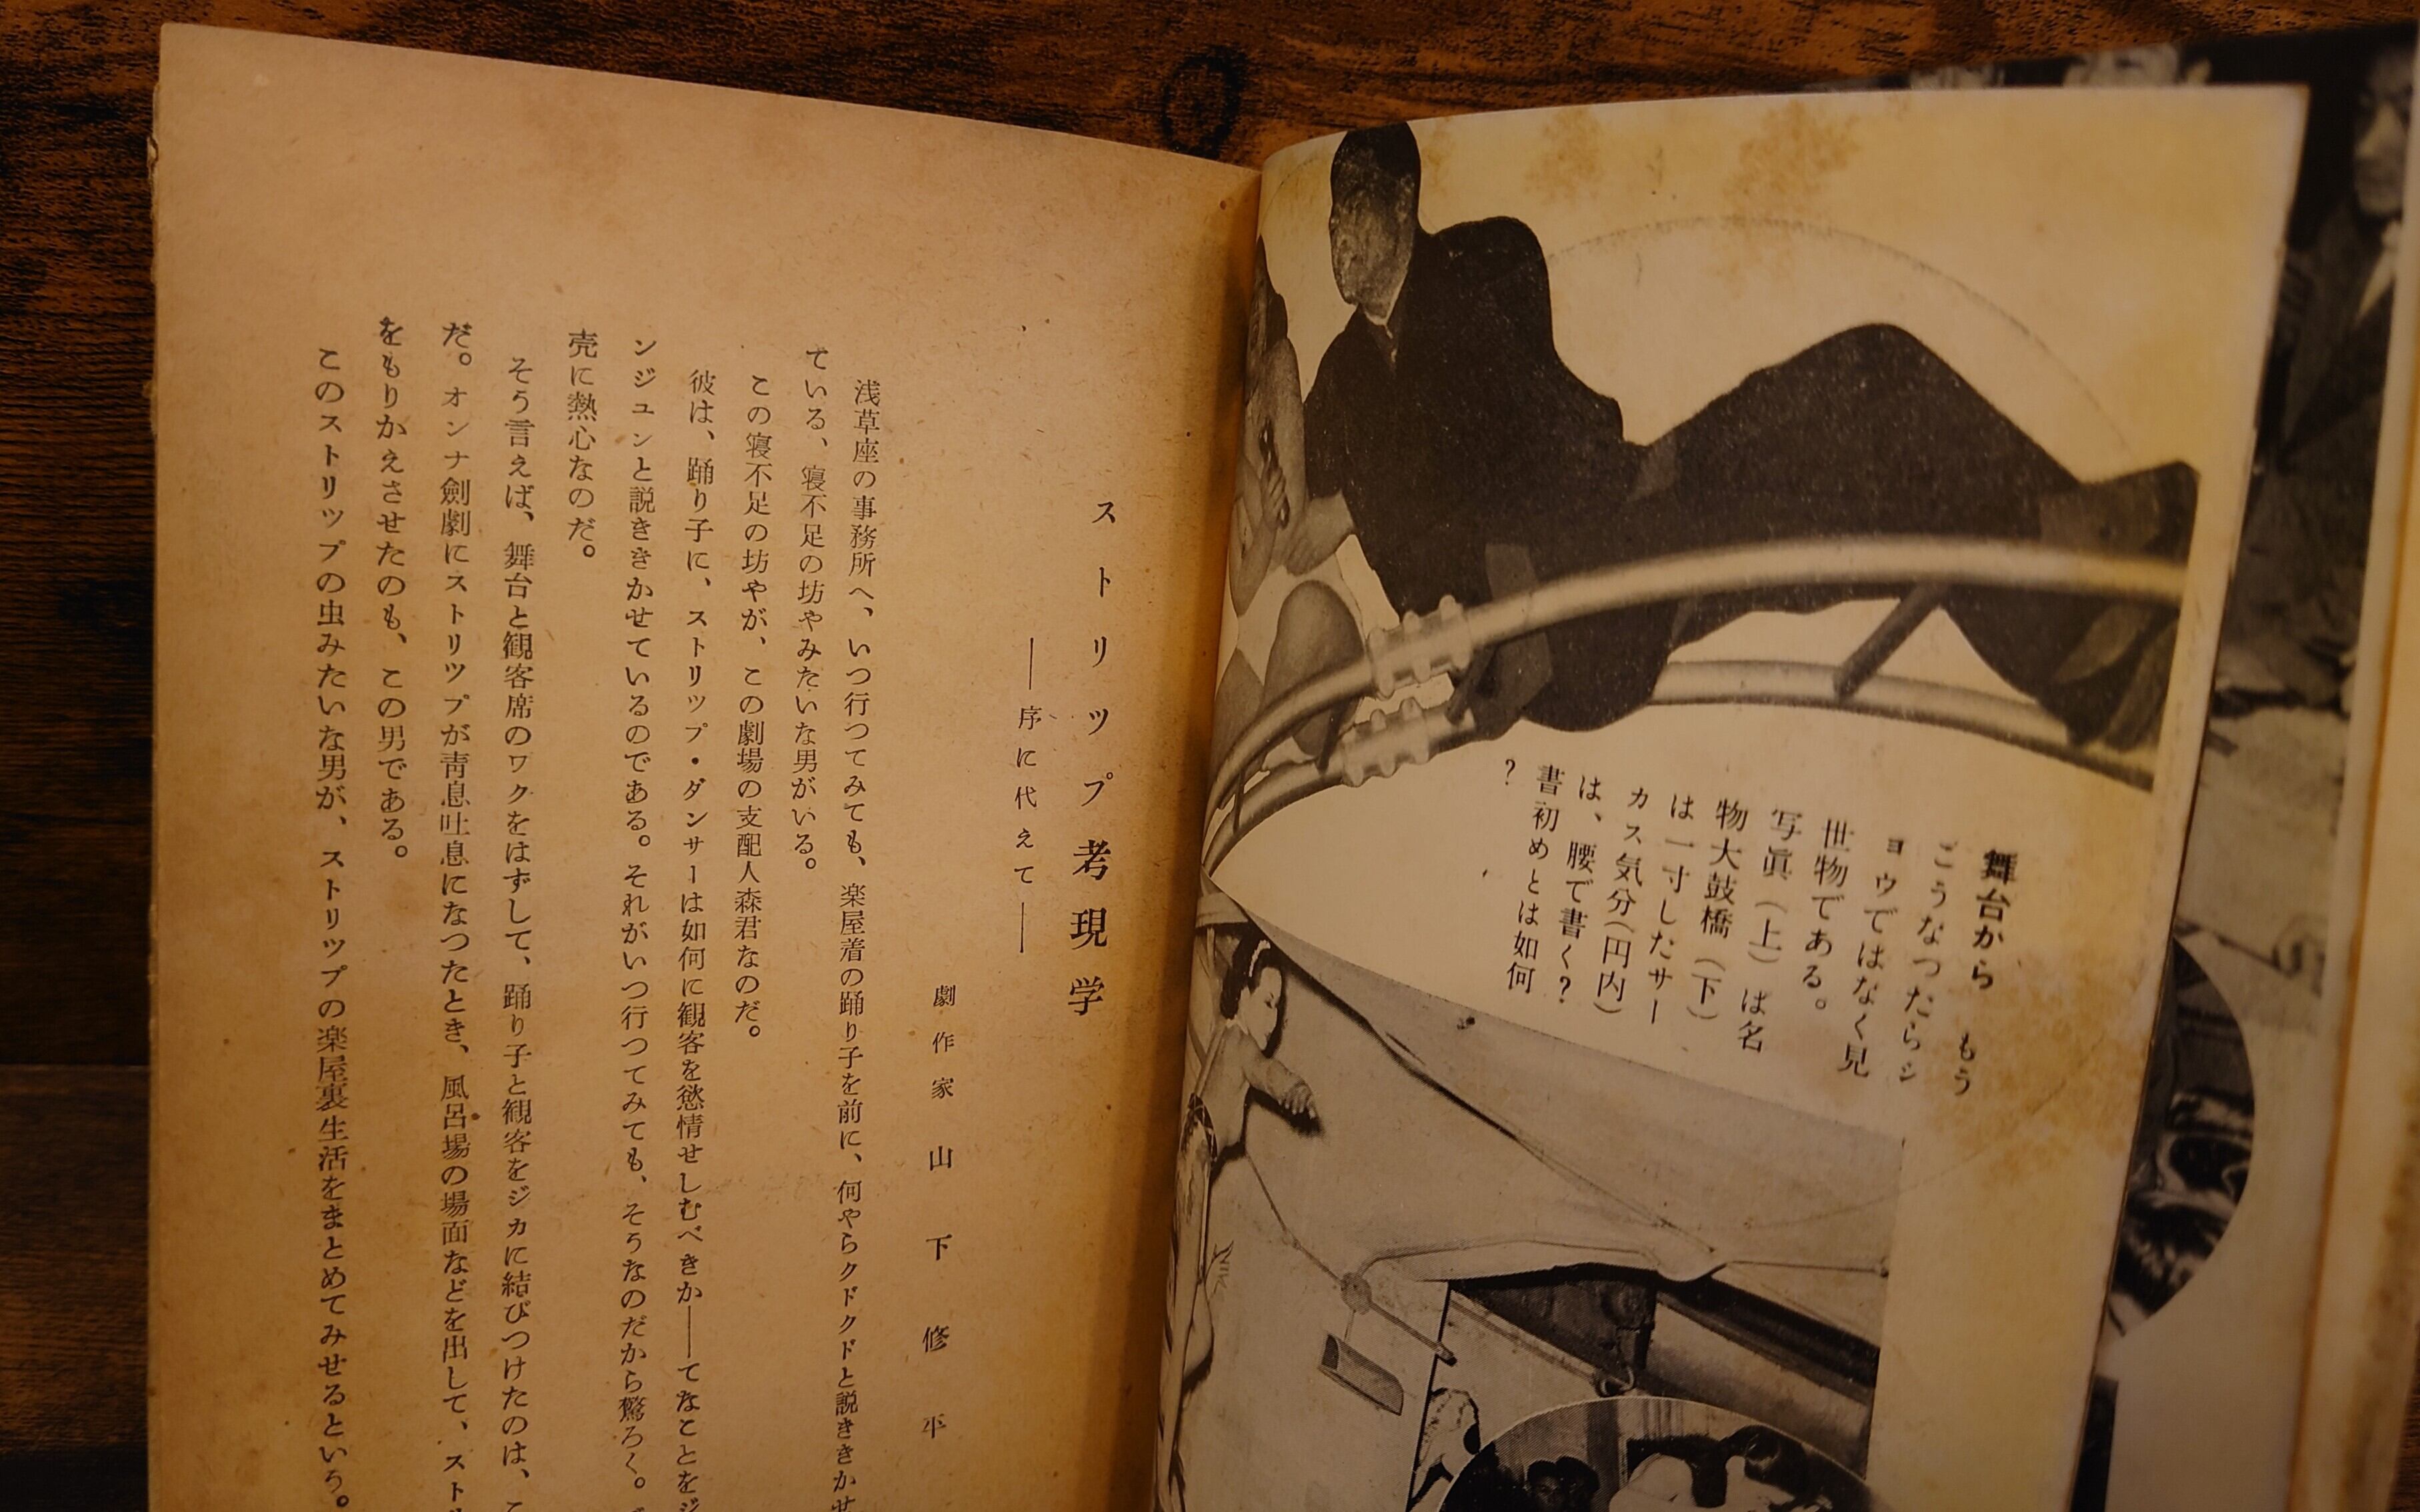 舞台から　もう
こうなつたらシ
ヨウではなく見
世物である。
写眞（上）は名
物大鼓橋（下）
は一寸したサー
カス気分（円内）
は、腰で書く？
書初めとは如何
？
ストリツプ考現学
――序に代えて――
劇作家　山下修平
浅草座の事務所へ、いつ行つてみても、楽屋着の踊り子を前に、何やらクドクドと説ききかせ
ている、寝不足の坊やみたいな男がいる。
この寝不足の坊やが、この劇場の支配人森君なのだ。
彼は、踊り子に、ストリツプ・ダンサーは如何に観客を慾情せしむべきか――てなことをジ
ンジュンと説ききかせているのである。それがいつ行つてみても、そうなのだから驚ろく。
売に熱心なのだ。
そう言えば、舞台と観客席のワクをはずして、踊り子と観客をジカに結びつけたのは、こ
だ。オンナ劍劇にストリツプが靑息吐息になつたとき、風呂場の場面などを出して、スト
をもりかえさせたのも、この男である。
このストリツプの虫みたいな男が、ストリツプの楽屋裏生活をまとめてみせるという。